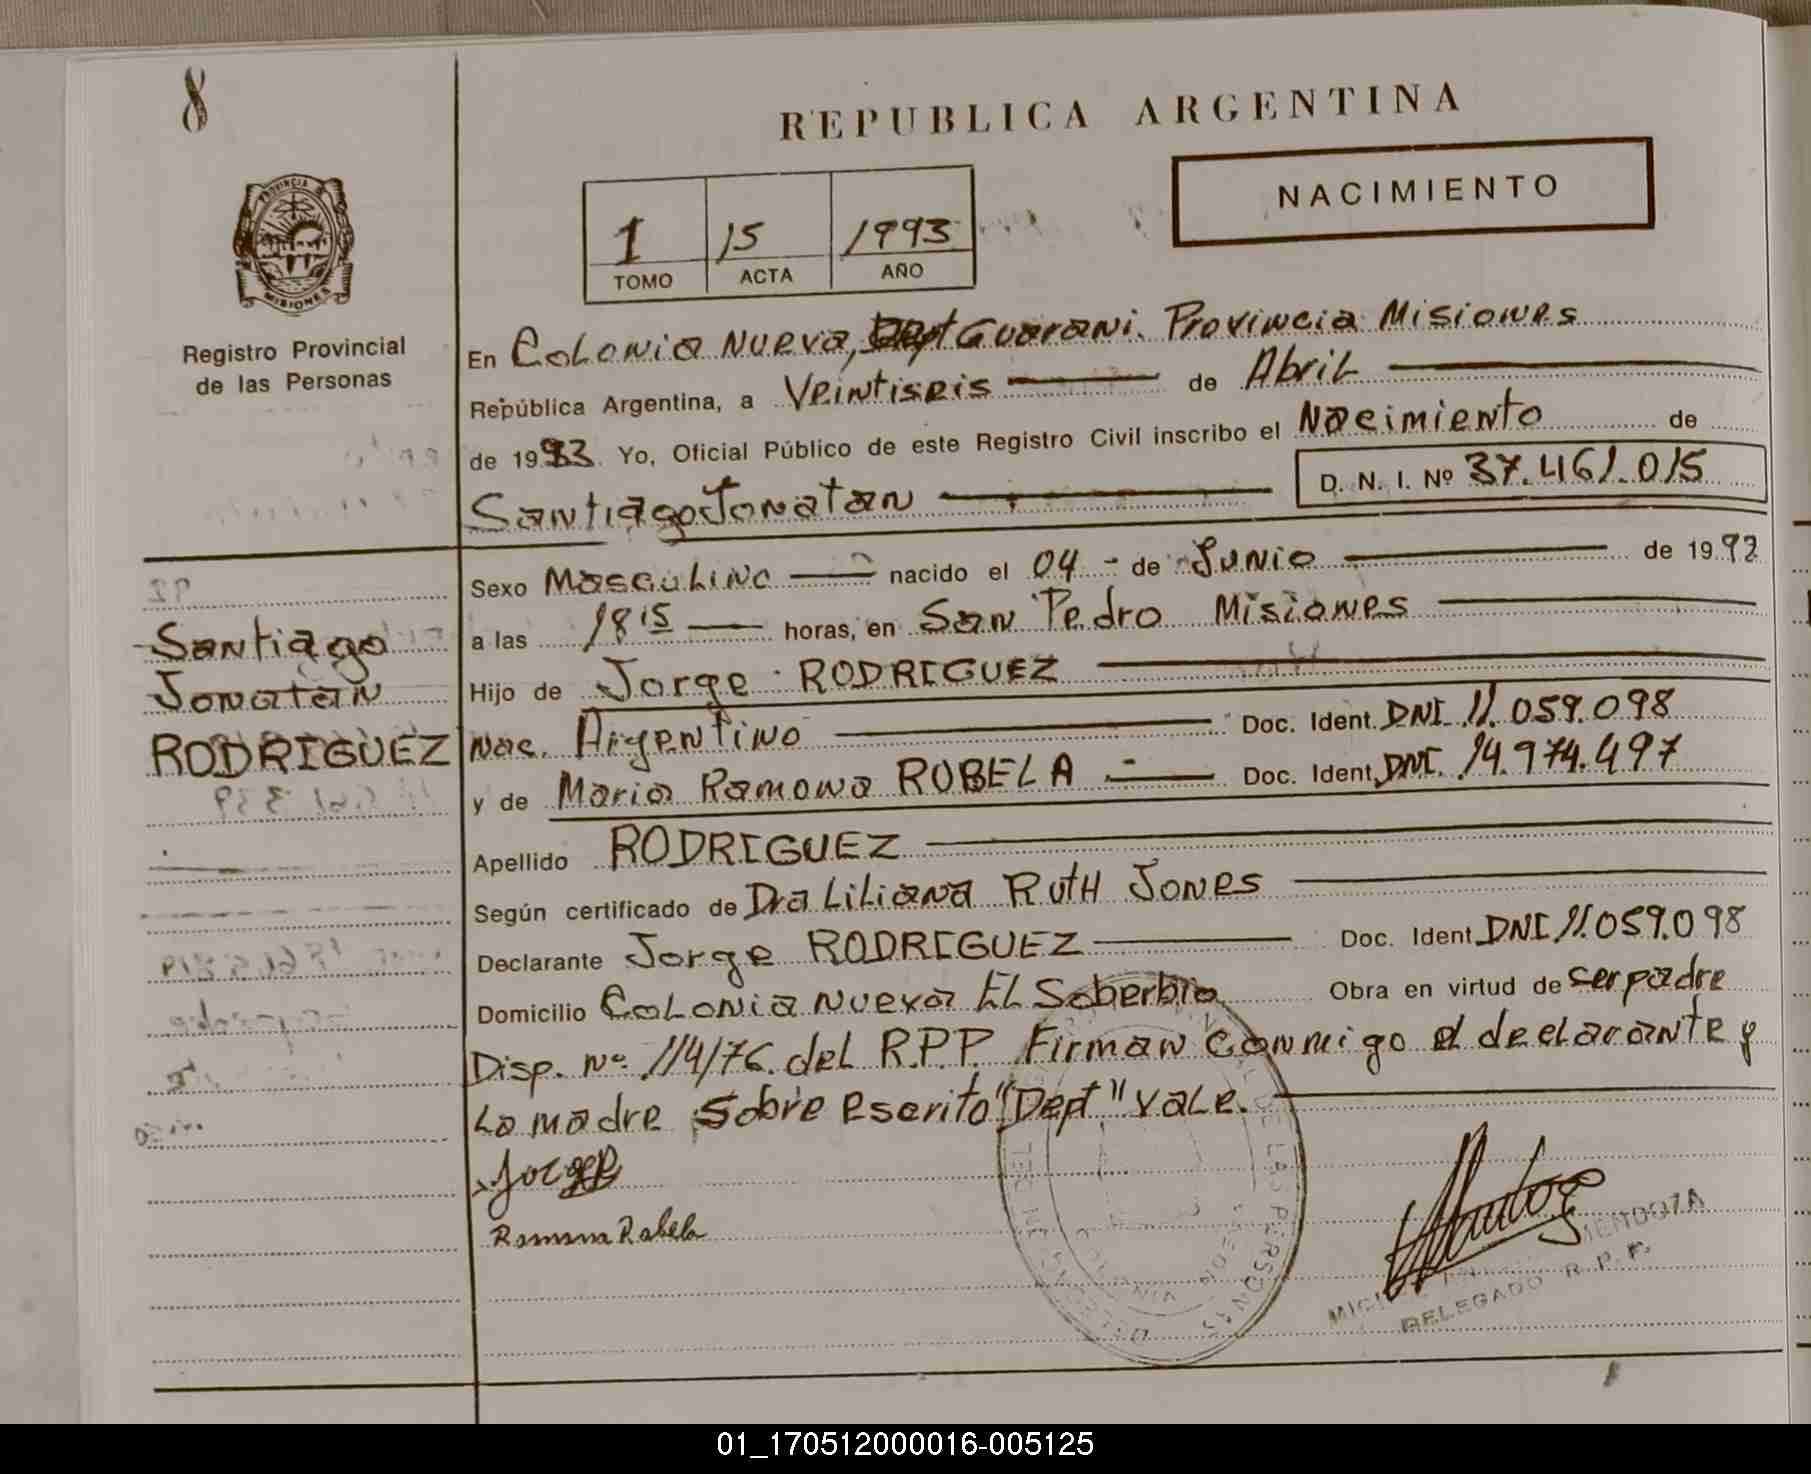 8
REPUBLICA ARGENTINA
NACIMIENTO
1 15 1993
TOMO ACTA AÑO
PROVINCIA DE
MISIONES
Registro Provincial
de las Personas
En Colonia Nueva, Dept Guarani. Provincia Misiones
República Argentina, a Veintiseis de Abril
de 1993. Yo, Oficial Público de este Registro Civil inscribo el Nacimiento de
Santiago Jonatan D. N. I. Nº 37.461.015
Sexo Masculino nacido el 04 - de Junio de 1992
a las 18 15 horas, en San Pedro Misiones
Hijo de Jorge RODRIGUEZ
Nac. Argentino Doc. Ident. DNI 11.059.098
y de Maria Ramona ROBELA Doc. Ident. DNI. 14.974.497
Apellido RODRIGUEZ
Según certificado de Dra Liliana Ruth Jones
Declarante Jorge RODRIGUEZ Doc. Ident DNI 11.059.098
Domicilio Colonia Nueva El Soberbio Obra en virtud de ser padre
Disp. Nº 114/76. del R.P.P. Firman conmigo el declarante y
la madre sobre escrito "Dept" vale.
Santiago
Jonatan
RODRIGUEZ
Jorge R
Ramona Rabela
MENDOZA
DELEGADO R. P. P.
01_170512000016-005125